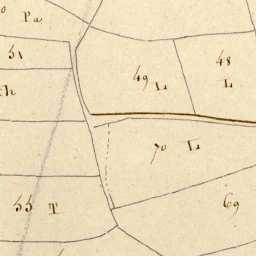 Pa
51
49 L
48 L
70 L
55 T
69